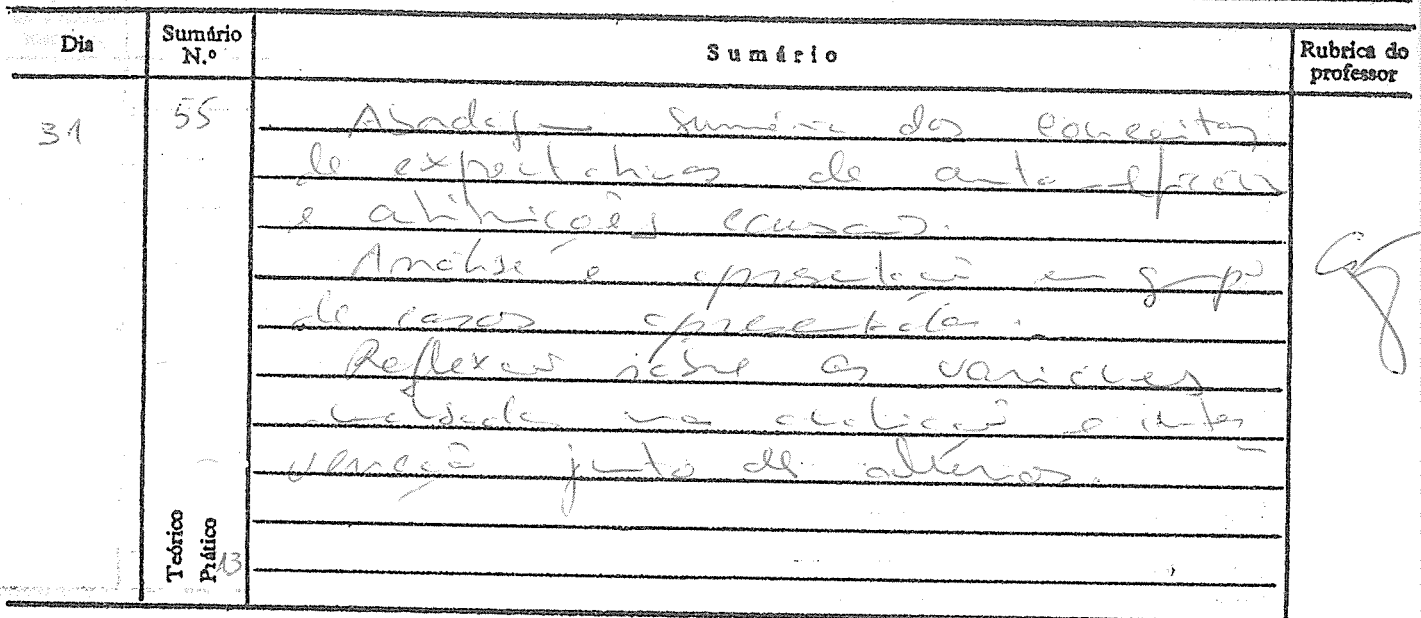 Dia
Sumário N.º
Sumário
Rubrica do professor
31
55
Abordagem sumária dos conceitos
de expectativas de auto-eficácia
e atribuições causais.
Análise e apresentação em grupo
de casos apresentados.
Reflexão sobre as variáveis
na avaliação e inter-
venção junto de alunos.
Teórico
Prático 13